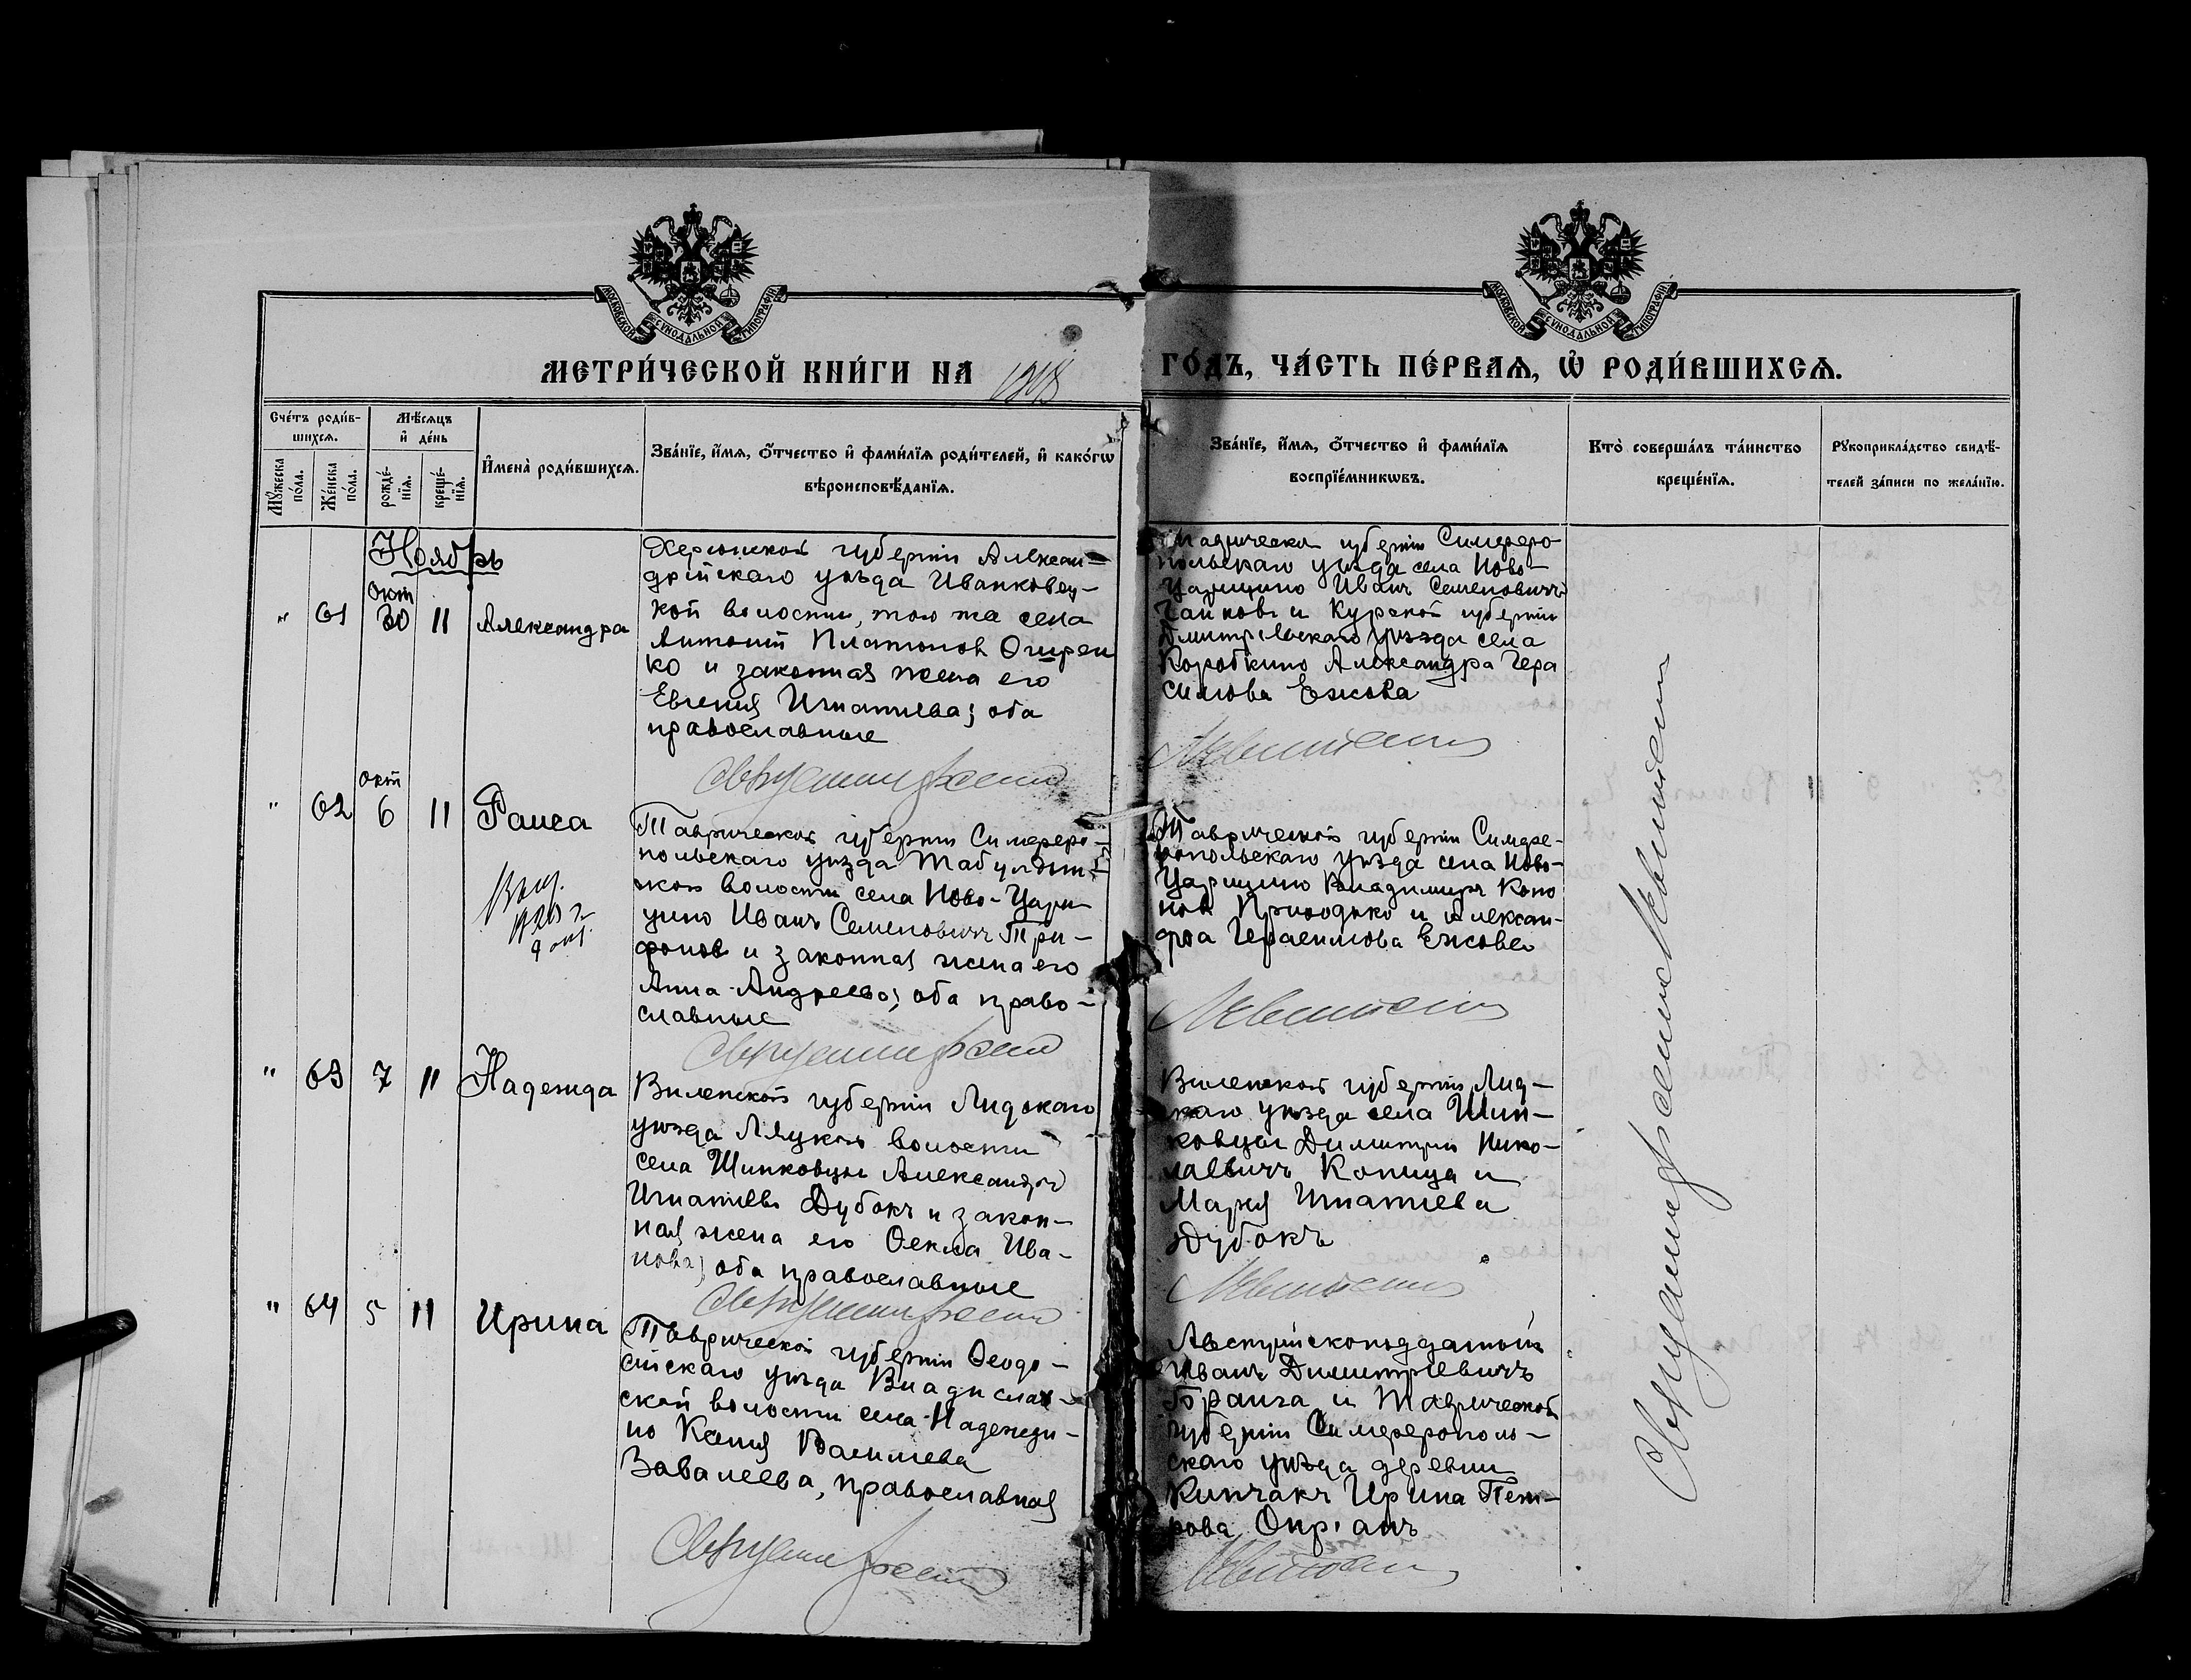 МОСКОВСКОЙ СѴНОДАЛЬНОЙ ТИПОГРАФІИ
МОСКОВСКОЙ СѴНОДАЛЬНОЙ ТИПОГРАФІИ
МЕТРИ́ЧЕСКОЙ КНИ́ГИ НА 1918 ГО́ДЪ, ЧА́СТЬ ПЕ́РВАѦ, Ѡ҆ РОДИ́ВШИХСѦ.
Сче́тъ роди́в-
шихсѧ.
Мѣ́сѧцъ
и҆ де́нь
Мꙋ́жеска
по́ла.
Же́нска
по́ла.
рожде́-
нїѧ.
креще́-
нїѧ.
И҆мена̀ роди́вшихсѧ.
Зва́нїе, и҆́мѧ, ѻ҆́тчество и҆ фами́лїѧ роди́телей, и҆ како́гѡ
вѣроисповѣ́данїѧ.
Зва́нїе, и҆́мѧ, ѻ҆́тчество и҆ фами́лїѧ
воспрїе́мникѡвъ.
Кто̀ соверша́лъ та́инство
креще́нїѧ.
Рꙋкоприкла́дство свидѣ́-
телей за́писи по жела́нїю.
Ноябрь
" 61 окт 30 11 Александра
Херсонской губерніи Алексан=
дрійскаго уѣзда Иванковец-
кой волости, того же села
Антоній Платонов
ко и законная жена его
Евгенія Игнатиева; оба
православные
Таврической губерніи Симферо-
польскаго уѣзда села Ново-
Царицино Иванъ Семеновичъ
Чайковъ и Курской губерніи
Дмитріевскаго уѣзда села
Коробкино Александра Гера
симова Ежова
" 62 окт 6 11 Раиса
Таврической губерніи Симферо-
польскаго уѣзда Табулдин-
ской волости села Ново-Цари
цино Иванъ Семеновичъ Три-
фонов и законная жена его
Анна Андреева; оба право-
славные
Таврической губерніи Симфе-
ропольскаго уѣзда села Ново-
Царицино Владимиръ Коно
нов Приходько и Алексан-
дра Герасимова Ежова
" 63 7 11 Надежда
Виленской губерніи Лидскаго
уѣзда Ляцкой волости
села Шинковцы Александръ
Игнатиевъ Дубокъ и закон-
ная жена его Ѳекла Ива-
нова; оба православные
Виленской губерніи Лид-
скаго уѣзда села Шин-
ковцы Димитрій Нико-
лаевичъ Копица и
Марія Игнатиева
Дубокъ
" 64 5 11 Ирина
Таврической губерніи Ѳеодо-
сійскаго уѣзда Владислав-
ской волости села Надежди-
но Ксенія Василиева
Завалеева, православная
Австрійскоподданый
Иванъ Димитріевичъ
Бранга и Таврической
губерніи Симферополь-
скаго уѣзда деревни
Кипчакъ Ирина Пет-
рова